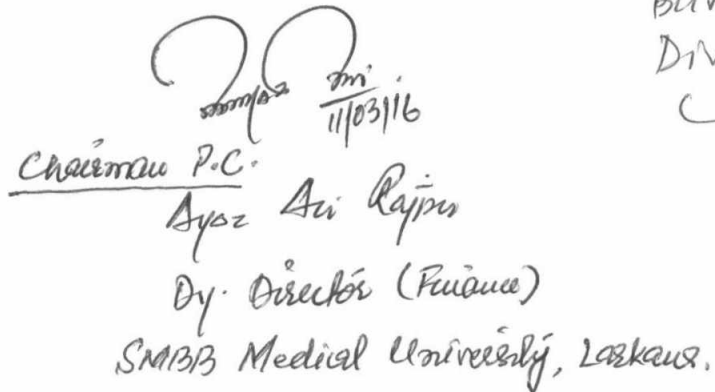 11/03/16
Chairman P.C.
Ayaz Ali Rajper
Dy. Director (Finance)
SMBB Medical University, Larkana.